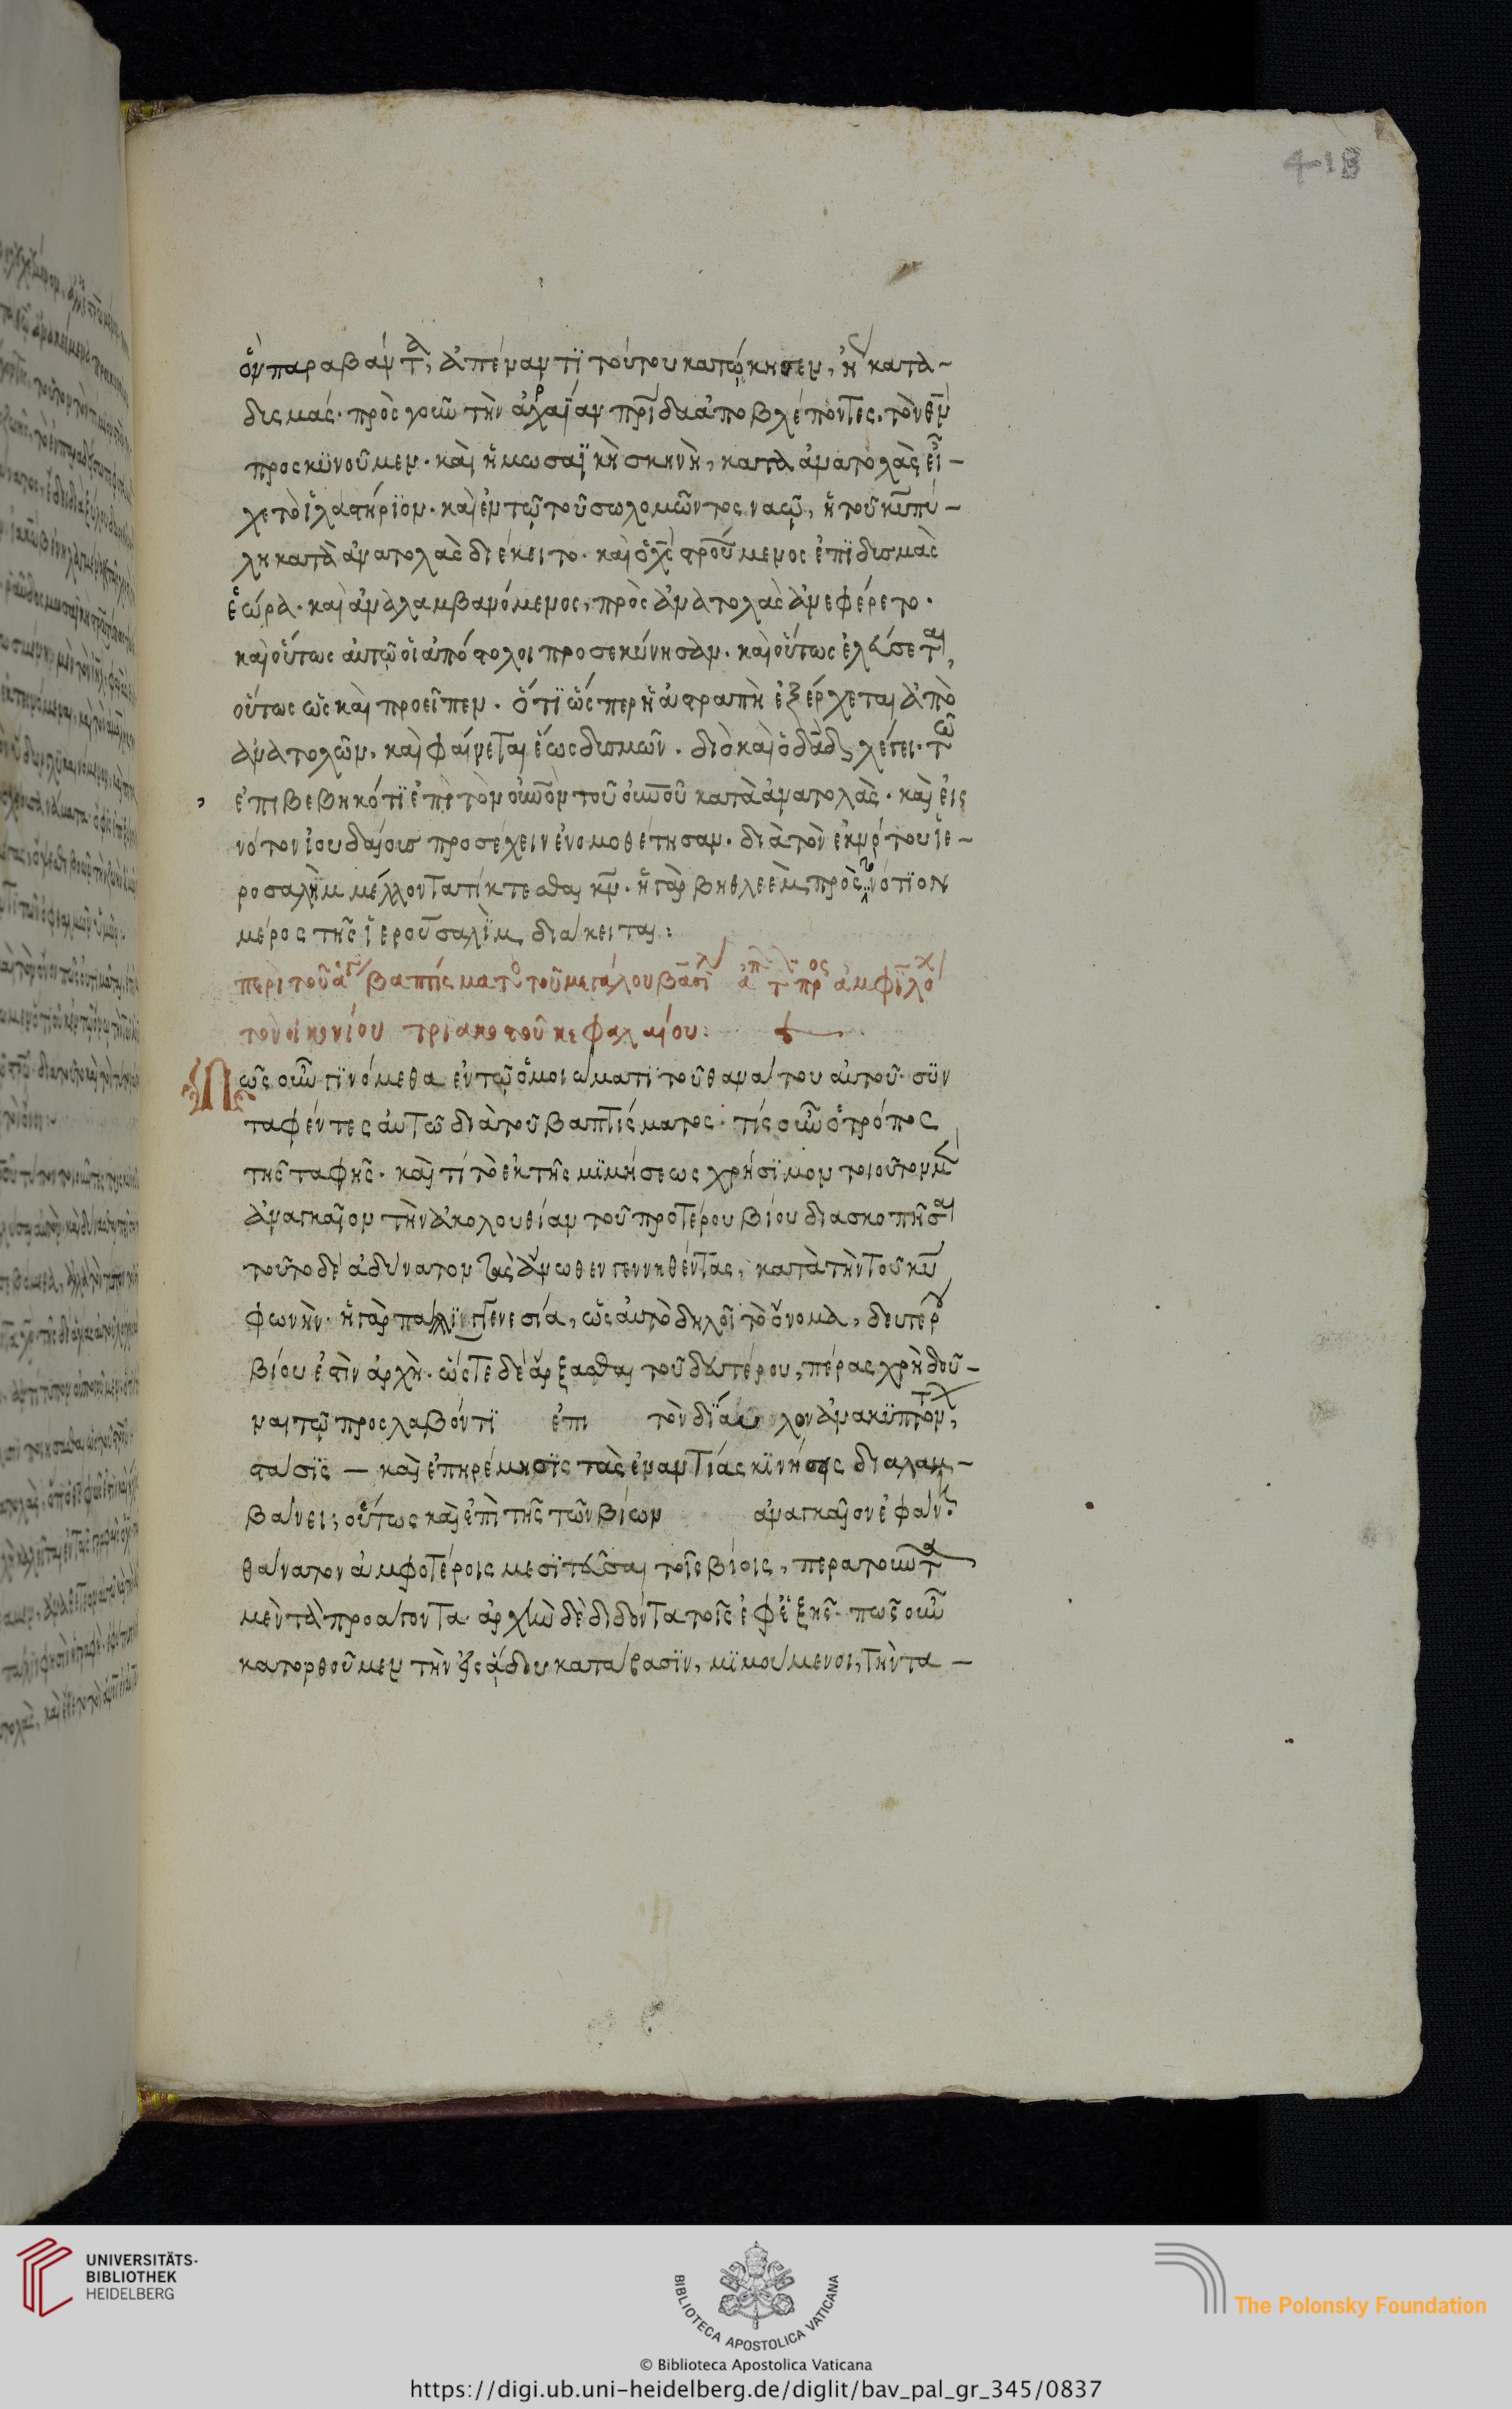 418
ὃν παραβάντα, ἀπέναντι τούτου κατῴκησεν, ἢ κατὰ-
δυσμάς· πρὸς γοῦν τὴν ἀρχαίαν πρίδα ἀποβλέποντες, τὸν θν
προσκυνοῦμεν· καὶ ἡ μωσαϊκὴ σκηνὴ, κατὰ ἀνατολὰς εἶ-
χε τὸ ἱλαστήριον· καὶ ἐν τῷ τοῦ σωλομῶντος ναῷ, ἡ τοῦ κυ πύ-
λη κατὰ ἀνατολὰς διέκειτο· καὶ ὁ χς στρούμενος ἐπὶ δυσμὰς
ἑώρα· καὶ ἀναλαμβανόμενος, πρὸς ἀνατολὰς ἀνεφέρετο·
καὶ οὕτως αὐτῷ οἱ ἀπόστολοι προσεκύνησαν· καὶ οὕτως ἐλεύσεται,
οὕτως ὡς καὶ προεῖπεν· ὅτι ὥσπερ ἡ ἀστραπὴ ἐξέρχεται ἀπὸ
ἀνατολῶν, καὶ φαίνεται ἕως δυσμῶν· διὸ καὶ ὁ δᾶδ λέγει· τῶ
ἐπιβεβηκότι ἐπὶ τὸν οὐνὸν τοῦ οὐνοῦ κατὰ ἀνατολὰς· καὶ εἰς
νότον ἰουδαίοις προσέχειν ἐνομοθέτησαν· διὰ τὸν ἐκ μρ του ἱε-
ροσαλὴμ μέλλοντα τίκτεσθαι κν· ἡ γὰρ βηθλεὲμ πρὸς τὸ νότιον
μέρος τῆς ἱερουσαλὶμ διάκειται:
περὶ τοῦ ἁγ βαπτίσματο τοῦ μεγάλου βασιλ ἀπ τ προς ἀμφίλοχ
τὸν οἰκονίου τριακοστοῦ κεφαλαίου:
Πῶς οὖν γινόμεθα ἐν τῷ ὁμοιώματι τοῦ θανάτου αὐτοῦ· συν
ταφέντες αὐτῶ διὰ τοῦ βαπτίσματος· τίς οὖν ὁ τρόπος
τῆς ταφῆς· καὶ τί τὸ ἐκ τῆς μιμήσεως χρήσιμον τοιοῦτον μ
ἀναγκαῖον τὴν ἀκολουθίαν τοῦ προτέρου βίου διασκοπῆσαι
τοῦτο δὲ ἀδύνατον τὰς ἄνωθεν γεννηθέντας, κατὰ τὴν τοῦ κυ
φωνὴν· ἡ γὰρ παλιγγενεσία, ὡς αὐτὸ δηλοῖ τὸ ὄνομα, δευτέρου
βίου ἐστὶν ἀρχὴ· ὥστε δὲ ἄρξασθαι τοῦ δευτέρου, πέρας χρὴ δοῦ-
ναι τῷ προσλαβόντι ἐπι τὸν δίαυλον ἀνακυπτόντ,
στάσις — καὶ ἐπηρέμησις τὰς ἐναντίας κινήσεις διαλαμ-
βάνει; οὕτως καὶ ἐπὶ τῆς τῶν βίων ἀναγκαῖον ἐφάν
θάνατον ἀμφοτέροις μεσιτεῦσαι τοῖς βίοις, περατοῦντα
μὲν τὰ προάγοντα· ἀρχὴν δὲ διδόντα τοῖς ἐφεξῆς· πῶς οὖν
κατορθοῦμεν τὴν εἰς ᾅδου κατάβασιν, μιμούμενοι, τὴν τα-
UNIVERSITÄTS-
BIBLIOTHEK
HEIDELBERG
BIBLIOTECA APOSTOLICA VATICANA
The Polonsky Foundation
© Biblioteca Apostolica Vaticana
https://digi.ub.uni-heidelberg.de/diglit/bav_pal_gr_345/0837